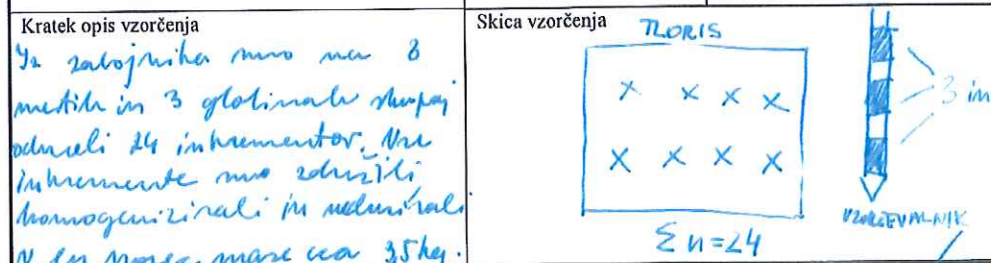 Kratek opis vzorčenja
Iz zabojnika smo na 8
mestih in 3 globinah skupaj
odvzeli 24 inkrementov. Vse
inkremente smo združili
homogenizirali in reducirali
v en vzorec mase cca 35kg.
Skica vzorčenja
TLORIS
X X X X
X X X X
Σn=24
3 in
VZORČEVALNIK